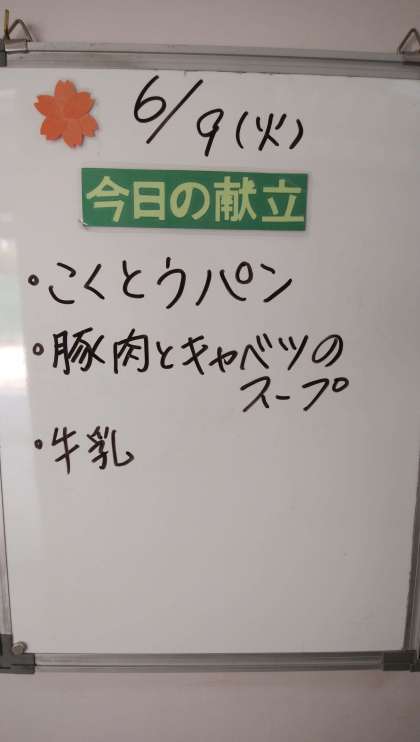 6/9(火)
今日の献立
・こくとうパン
・豚肉とキャベツの
スープ
・牛乳